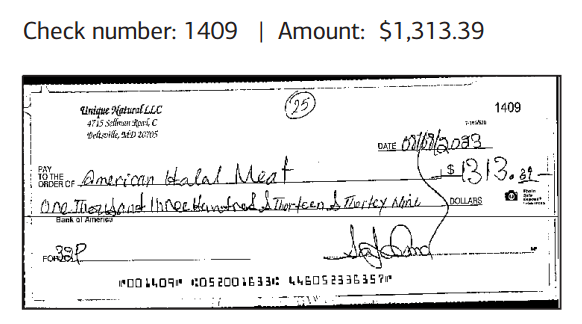 Check number: 1409 | Amount: $1,313.39
Unique Natural LLC
4715 Sellman Road, C
Beltsville, MD 20705
25
1409
DATE 08/08/2023
PAY TO THE ORDER OF American Halal Meat $ 1313.39
One Thousand Three Hundred & Thorteen & Thortey Nine DOLLARS
Photo Safe Deposit
Bank of America
FOR
MP
⑈001409⑈ ⑆052001633⑆ 446052336357⑈